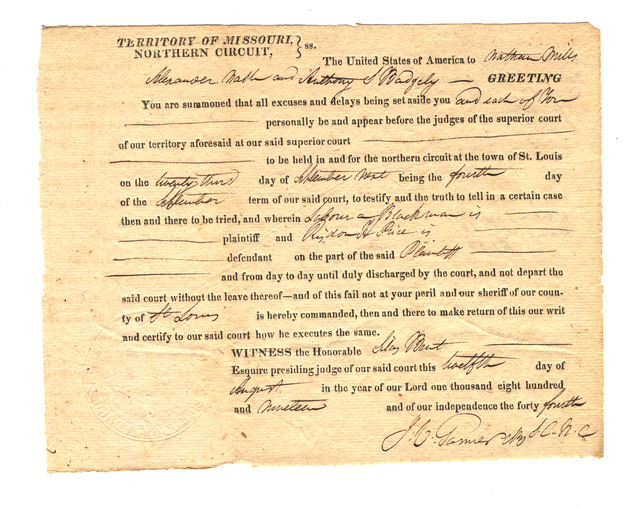 TERRITORY OF MISSOURI, } ss.
NORTHERN CIRCUIT,
The United States of America to Nathan Mills
Alexander Nash and Anthony S Badgely — GREETING
You are summoned that all excuses and delays being set aside you and each of You
personally be and appear before the judges of the superior court
of our territory aforesaid at our said superior court
to be held in and for the northern circuit at the town of St. Louis
on the twenty third day of September next being the fourth day
of the September term of our said court, to testify and the truth to tell in a certain case
then and there to be tried, and wherein Blackman is
plaintiff and Risdon H Price is
defendant on the part of the said Plaintiff
and from day to day until duly discharged by the court, and not depart the
said court without the leave thereof—and of this fail not at your peril and our sheriff of our coun-
ty of St Louis is hereby commanded, then and there to make return of this our writ
and certify to our said court how he executes the same.
WITNESS the Honorable
Esquire presiding judge of our said court this twelfth day of
August in the year of our Lord one thousand eight hundred
and nineteen and of our independence the forty fourth